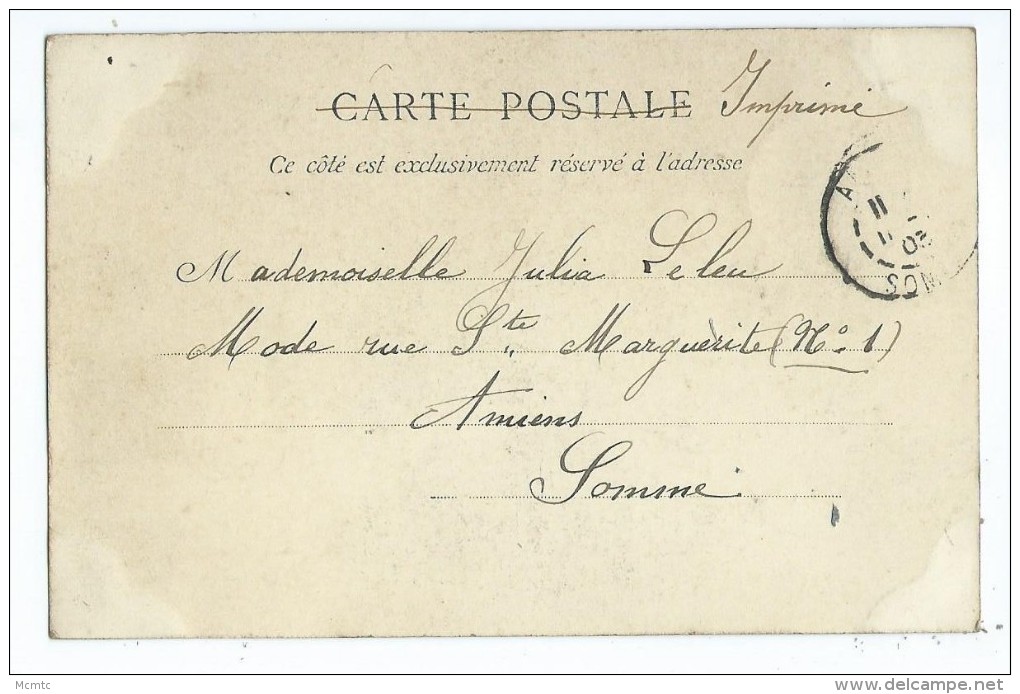 CARTE POSTALE Imprimé
Ce côté est exclusivement réservé à l'adresse
Mademoiselle Julia Leleu
Mode rue Ste Marguerite (No 1)
Amiens
Somme
Mcmtc
delcampe.net